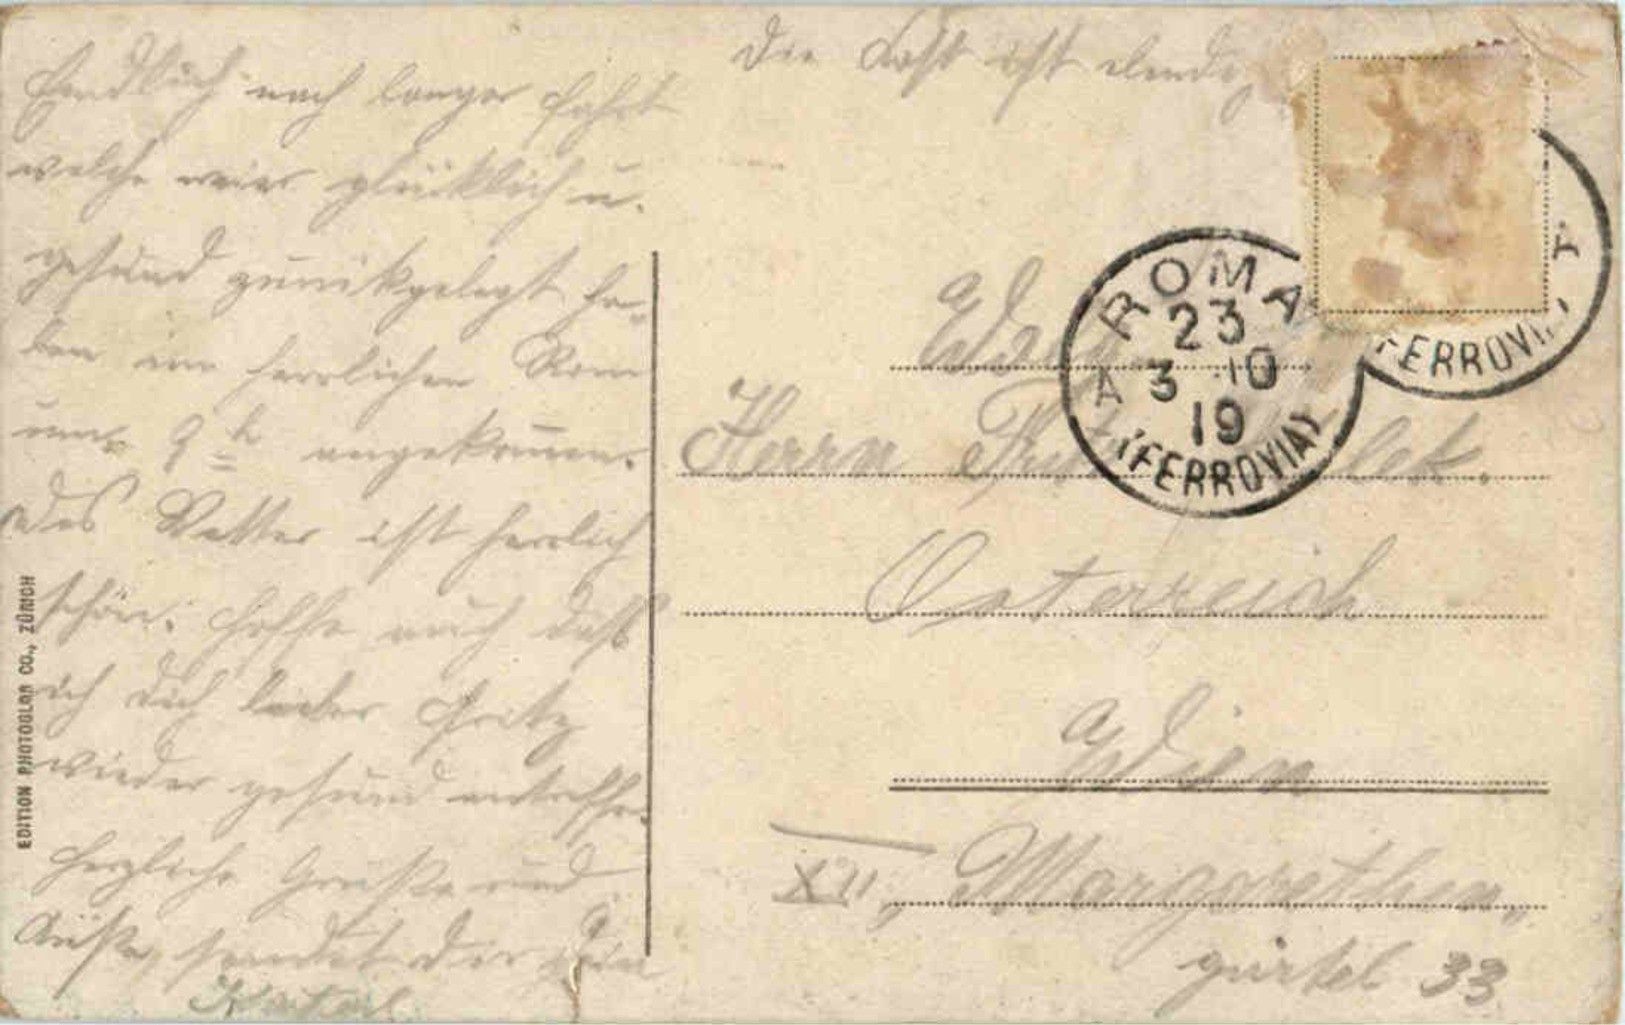 Endlich nach langer Fahrt
welche wir glücklich u.
gesund zurückgelegt ha-
ben im herrlichen Rom
um 9 h angekommen.
Das Wetter ist herrlich
schön. Hoffe auch daß
ich Dich lieber Fritz
wieder gesund antreffe.
Herzliche Grüße und
Küße, sendet der Dein
Die Kost ist elendig
ROMA
23
A 3 10
19
(FERROVIA)
(FERROVIA)
Herrn
Österreich
Wien
XII, Margarethen-
gürtel 33
EDITION PHOTOGLOB CO., ZÜRICH